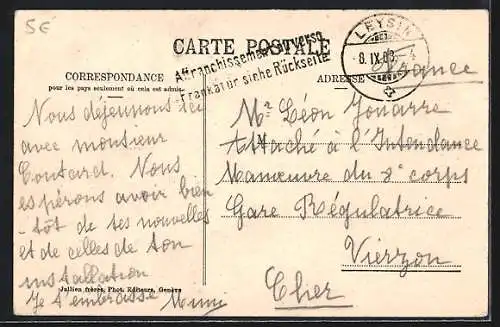 5E
CARTE POSTALE
Affranchissement au verso
Frankatur siehe Rückseite
LEYSIN
8.IX.08
CORRESPONDANCE
pour les pays seulement où cela est admis.
ADRESSE
France
Nous déjeunons ici
avec monsieur
Contard. Nous
espérons avoir bien
-tôt de tes nouvelles
et de celles de ton
installation
Je t'embrasse
Mr Léon Jouarre
Attaché à l'Intendance
Manœuvre du 8e corps
Gare Régulatrice
Vierzon
Cher
Jullien frères, Phot. Editeurs, Genève